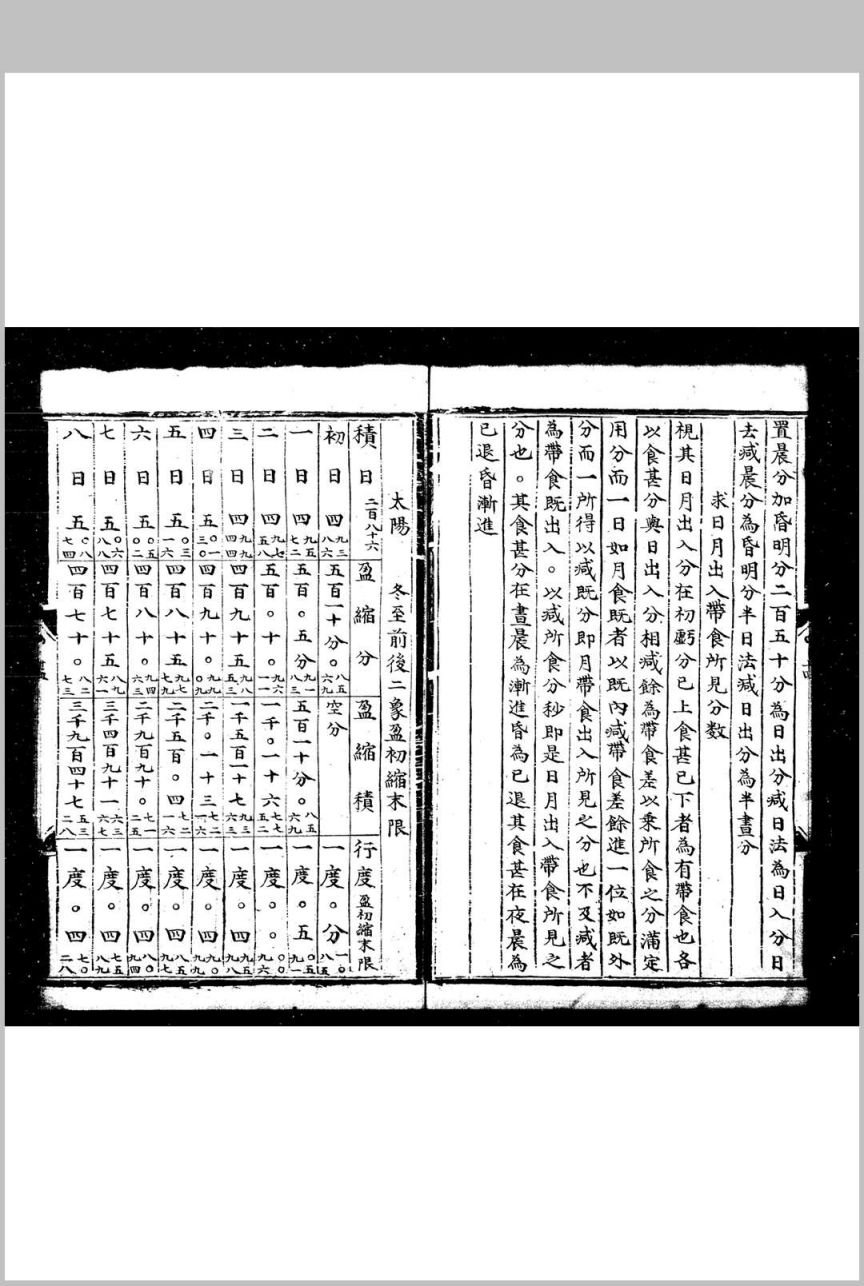 置晨分加昏明分二百五十分為日出分减日法為日入分日
去减晨分為昏明分半日法减日出分為半晝分
求日月出入帶食所見分數
視其日月出入分在初虧分已上食甚已下者為有帶食也各
以食甚分與日出入分相减餘為帶食差以乘所食之分滿定
用分而一日如月食既者以既內减帶食差餘進一位如既外
分而一所得以减既分即月帶食出入所見之分也不及减者
為帶食既出入〇以减所食分秒即是日月出入帶食所見之
分也〇其食甚分在晝晨為漸進昏為已退其食甚在夜晨為
已退昏漸進
太陽 冬至前後二象盈初縮末限
積日二百八十六 盈縮分 盈縮積 行度盈初縮末限
初日 四九三八六 五百一十分〇八五六九 空分 一度〇分一〇八五
一日 四九五七二 五百〇五分九一八三 五百一十分〇八五六九 一度〇五〇五九一
二日 四九七五八 五百〇十〇九六一一 一千〇一十六七七五二 一度〇〇〇〇九六
三日 四九九四四 四百九十五九八五三 一千五百一十七七三六三 一度〇四九五九八
四日 五〇一三〇 四百九十〇九九〇九 二千〇一十三七二一六 一度〇四九〇九九
五日 五〇三一六 四百八十五九七七九 二千五百〇四七二一六 一度〇四八五九七
六日 五〇五〇二 四百八十〇九四六三 二千九百九十〇七一二五 一度〇四八〇九四
七日 五〇六八八 四百七十五八九六一 三千四百九十一六三六七 一度〇四七五八九
八日 五〇八七四 四百七十〇八二七三 三千九百四十七五三二八 一度〇四七〇八二